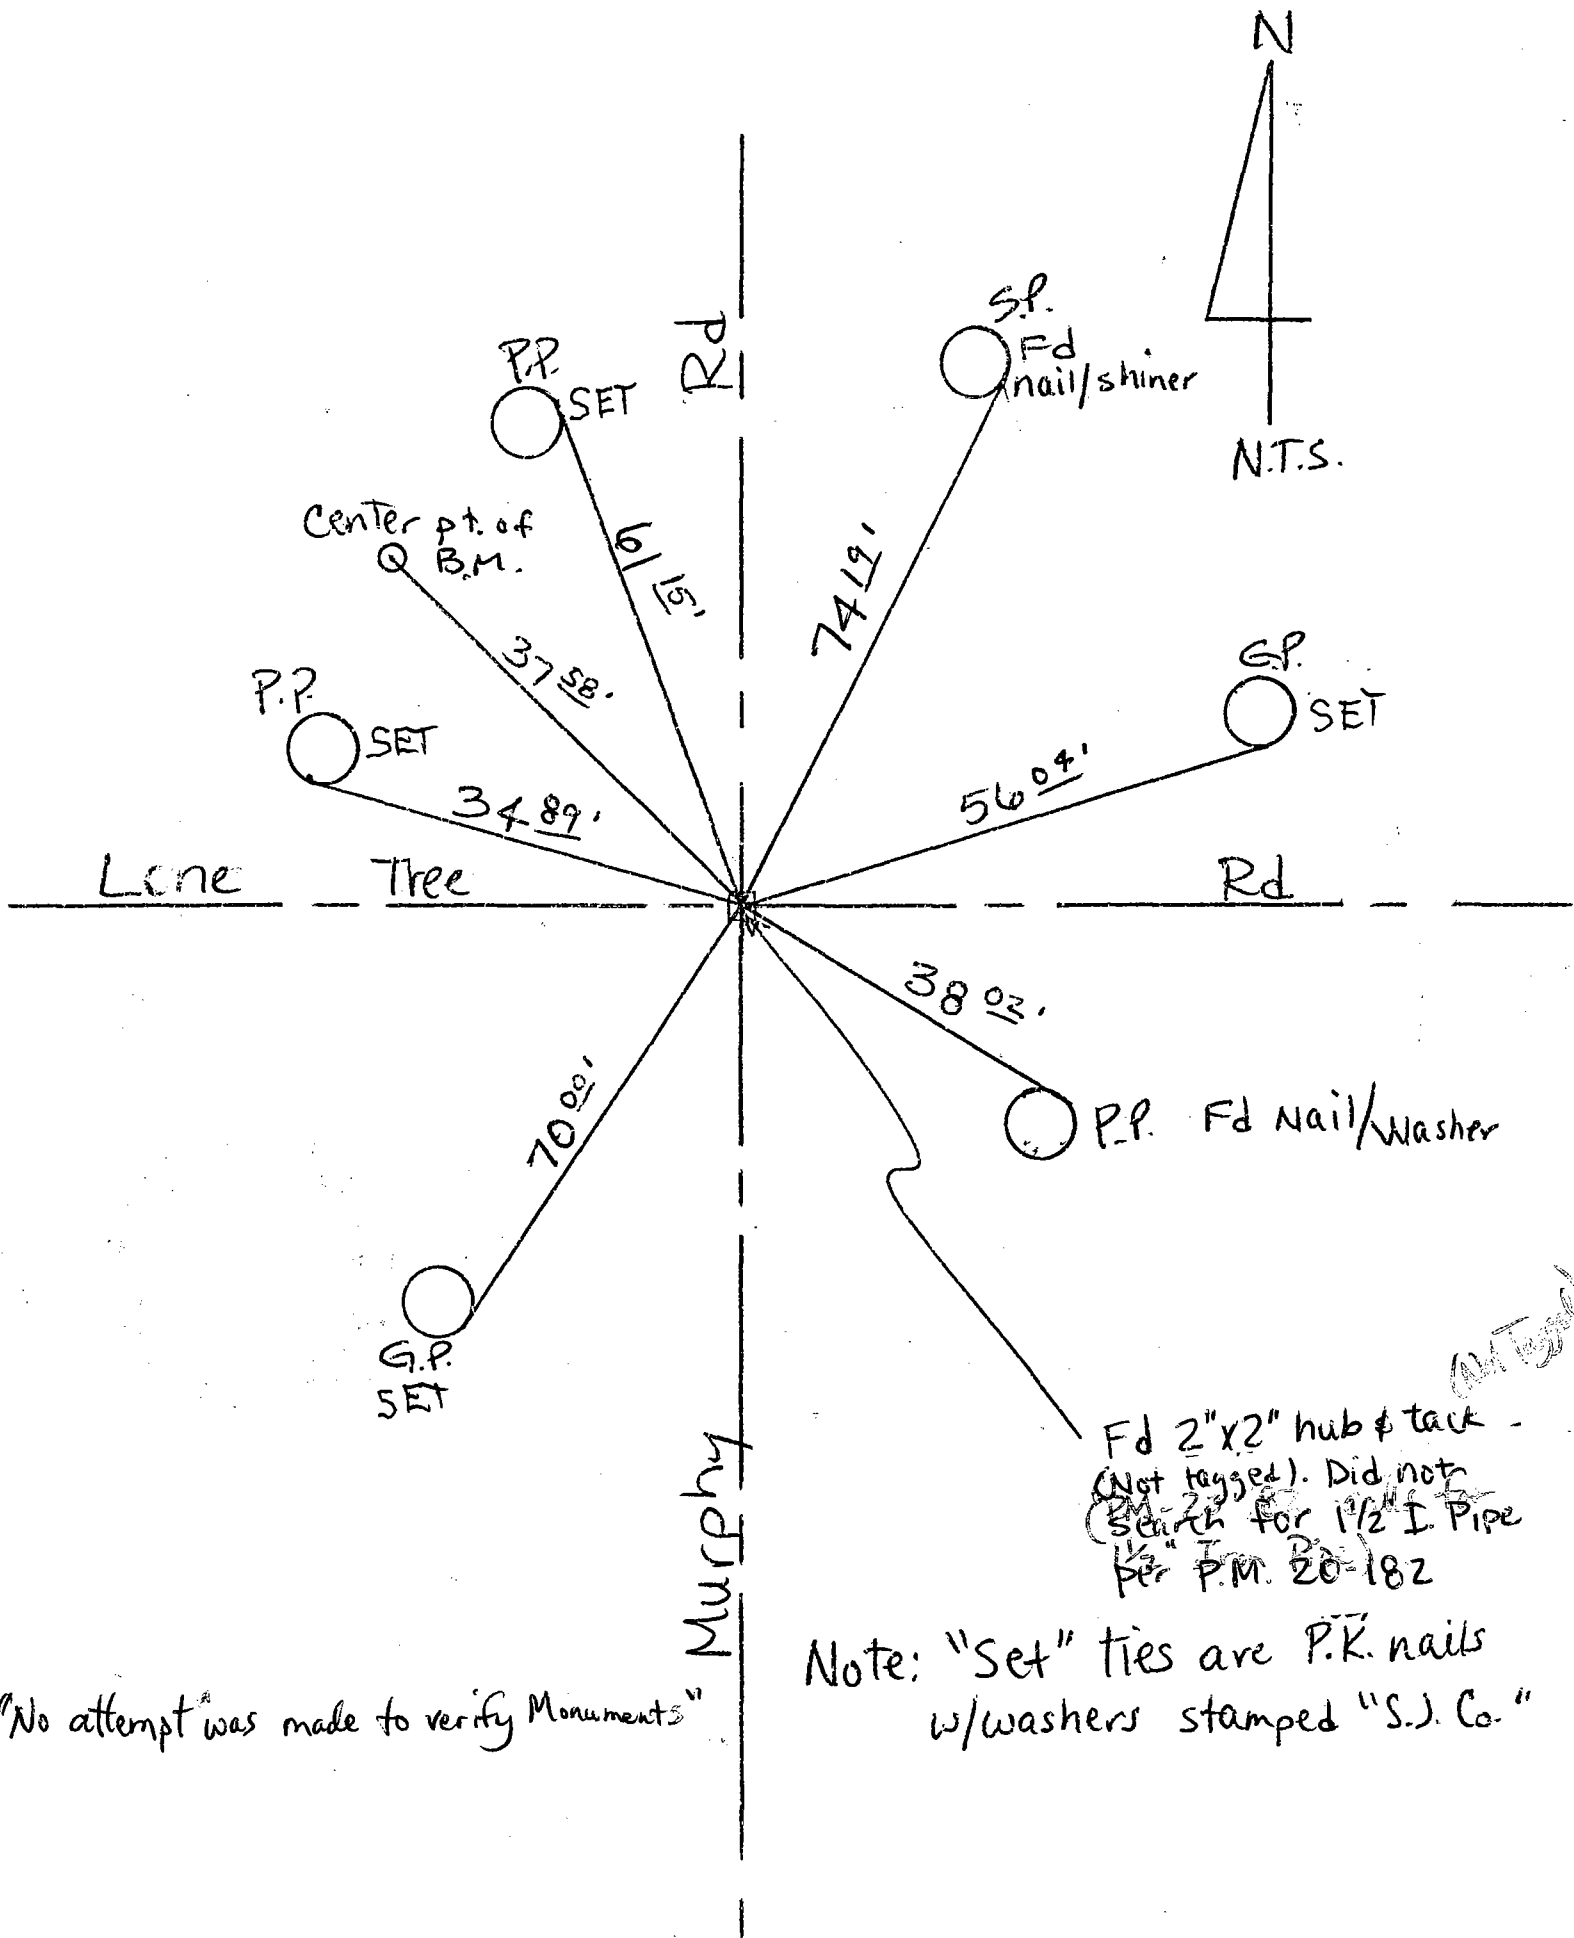 N
N.T.S.
S.P.
Fd
nail/shiner
P.P.
SET
Rd
Center pt. of
B.M.
61 15'
74 19'
37 58'
P.P.
SET
34 89'
G.P.
SET
56 04'
Lone Tree Rd
38 02'
P.P. Fd Nail/Washer
70 00'
G.P.
SET
Murphy
(Not Tagged)
Fd 2"x2" hub & tack -
(Not tagged). Did not
search for 1 1/2" I. Pipe
per P.M. 20-182
Note: "Set" ties are P.K. nails
w/washers stamped "S.J. Co."
"No attempt was made to verify Monuments"